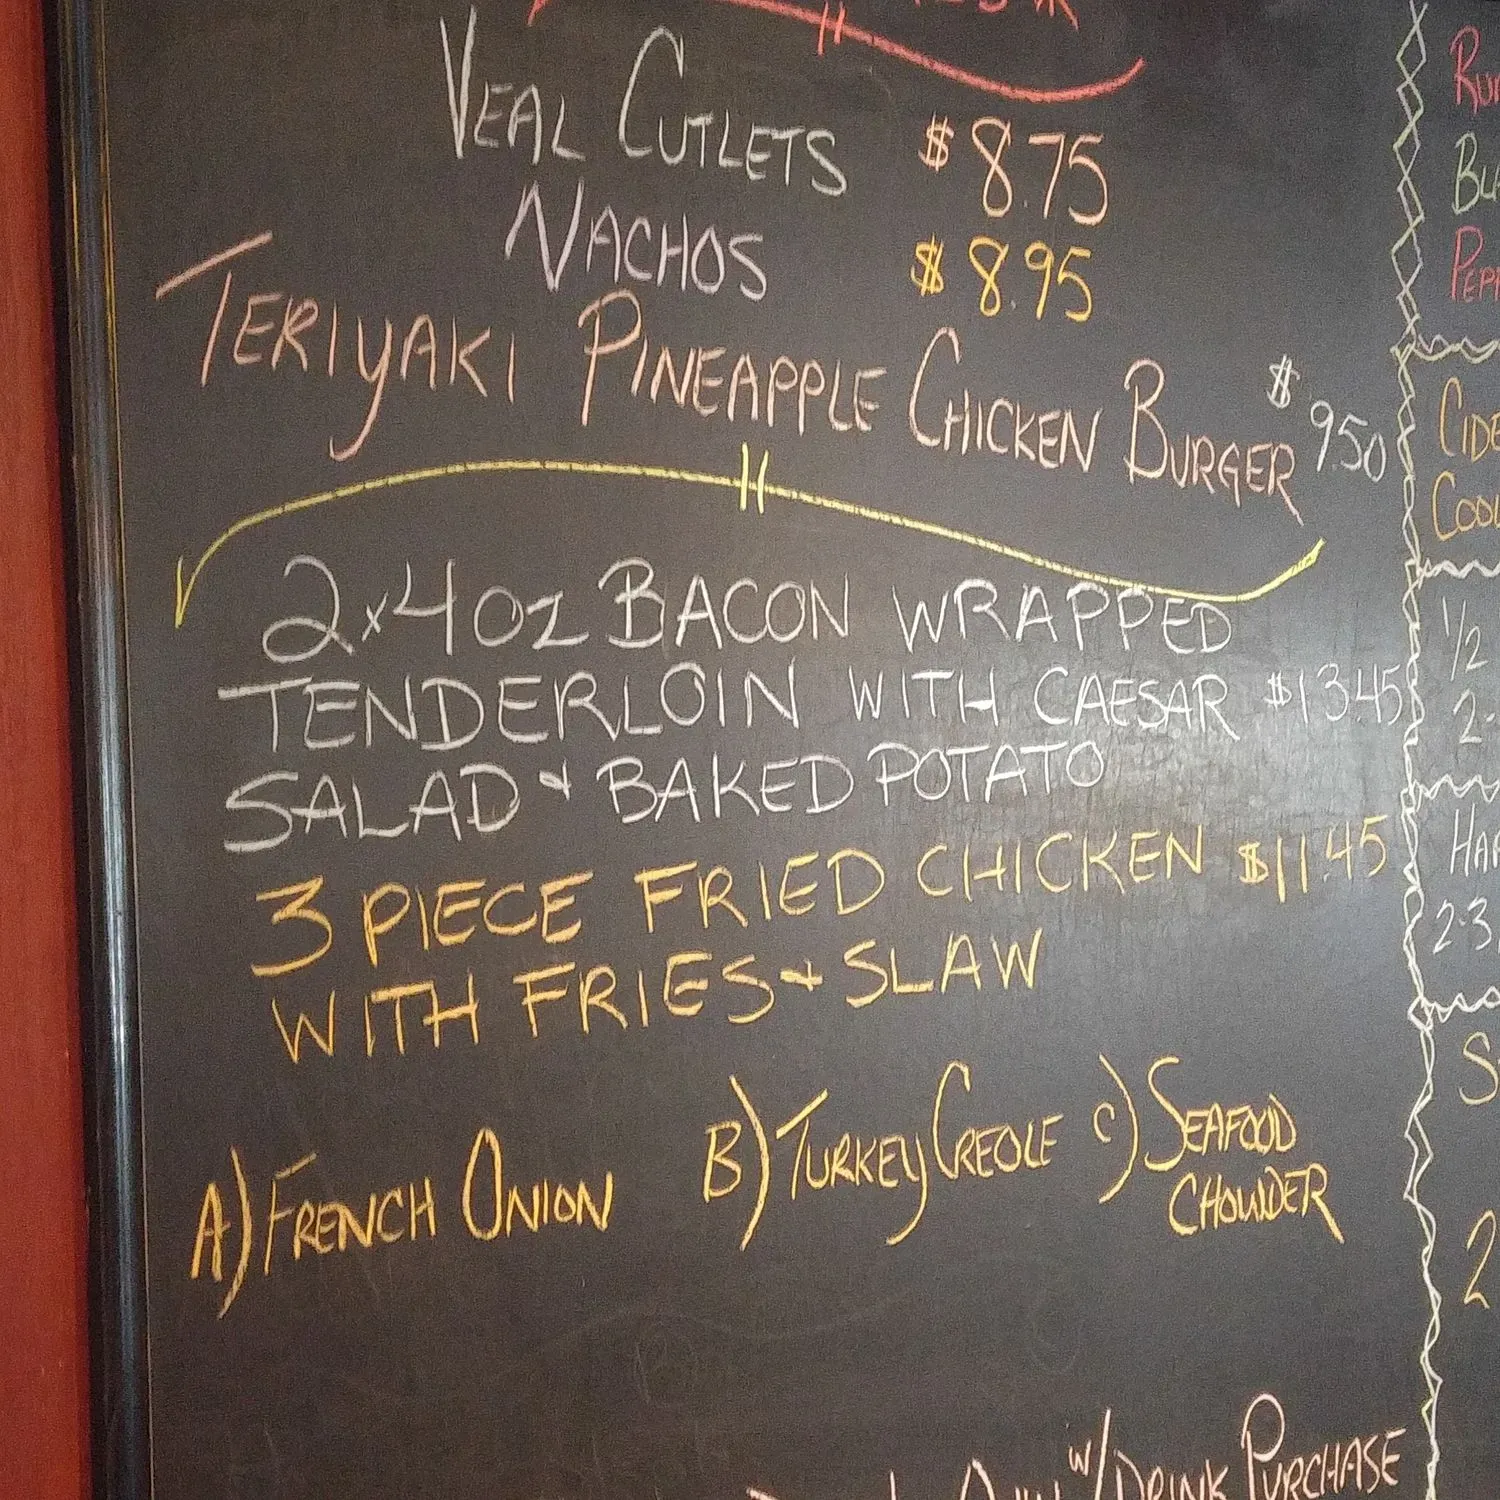 VEAL CUTLETS $8.75
NACHOS $8.95
TERIYAKI PINEAPPLE CHICKEN BURGER $9.50
2x4oz BACON WRAPPED
TENDERLOIN WITH CAESAR $13.45
SALAD & BAKED POTATO
3 PIECE FRIED CHICKEN $11.45
WITH FRIES & SLAW
A) FRENCH ONION B) TURKEY CREOLE C) SEAFOOD
CHOWDER
W/ DRINK PURCHASE
1/2
2.3
2